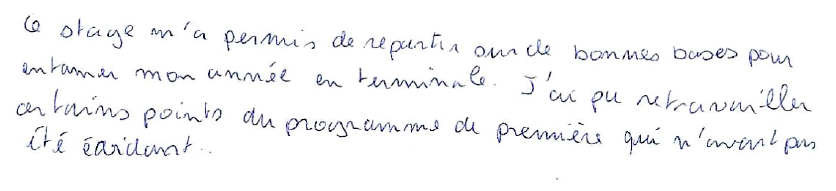 Ce stage m'a permis de repartir sur de bonnes bases pour
entamer mon année en terminale. J'ai pu retravailler
certains points du programme de première qui n'avait pas
été évident..